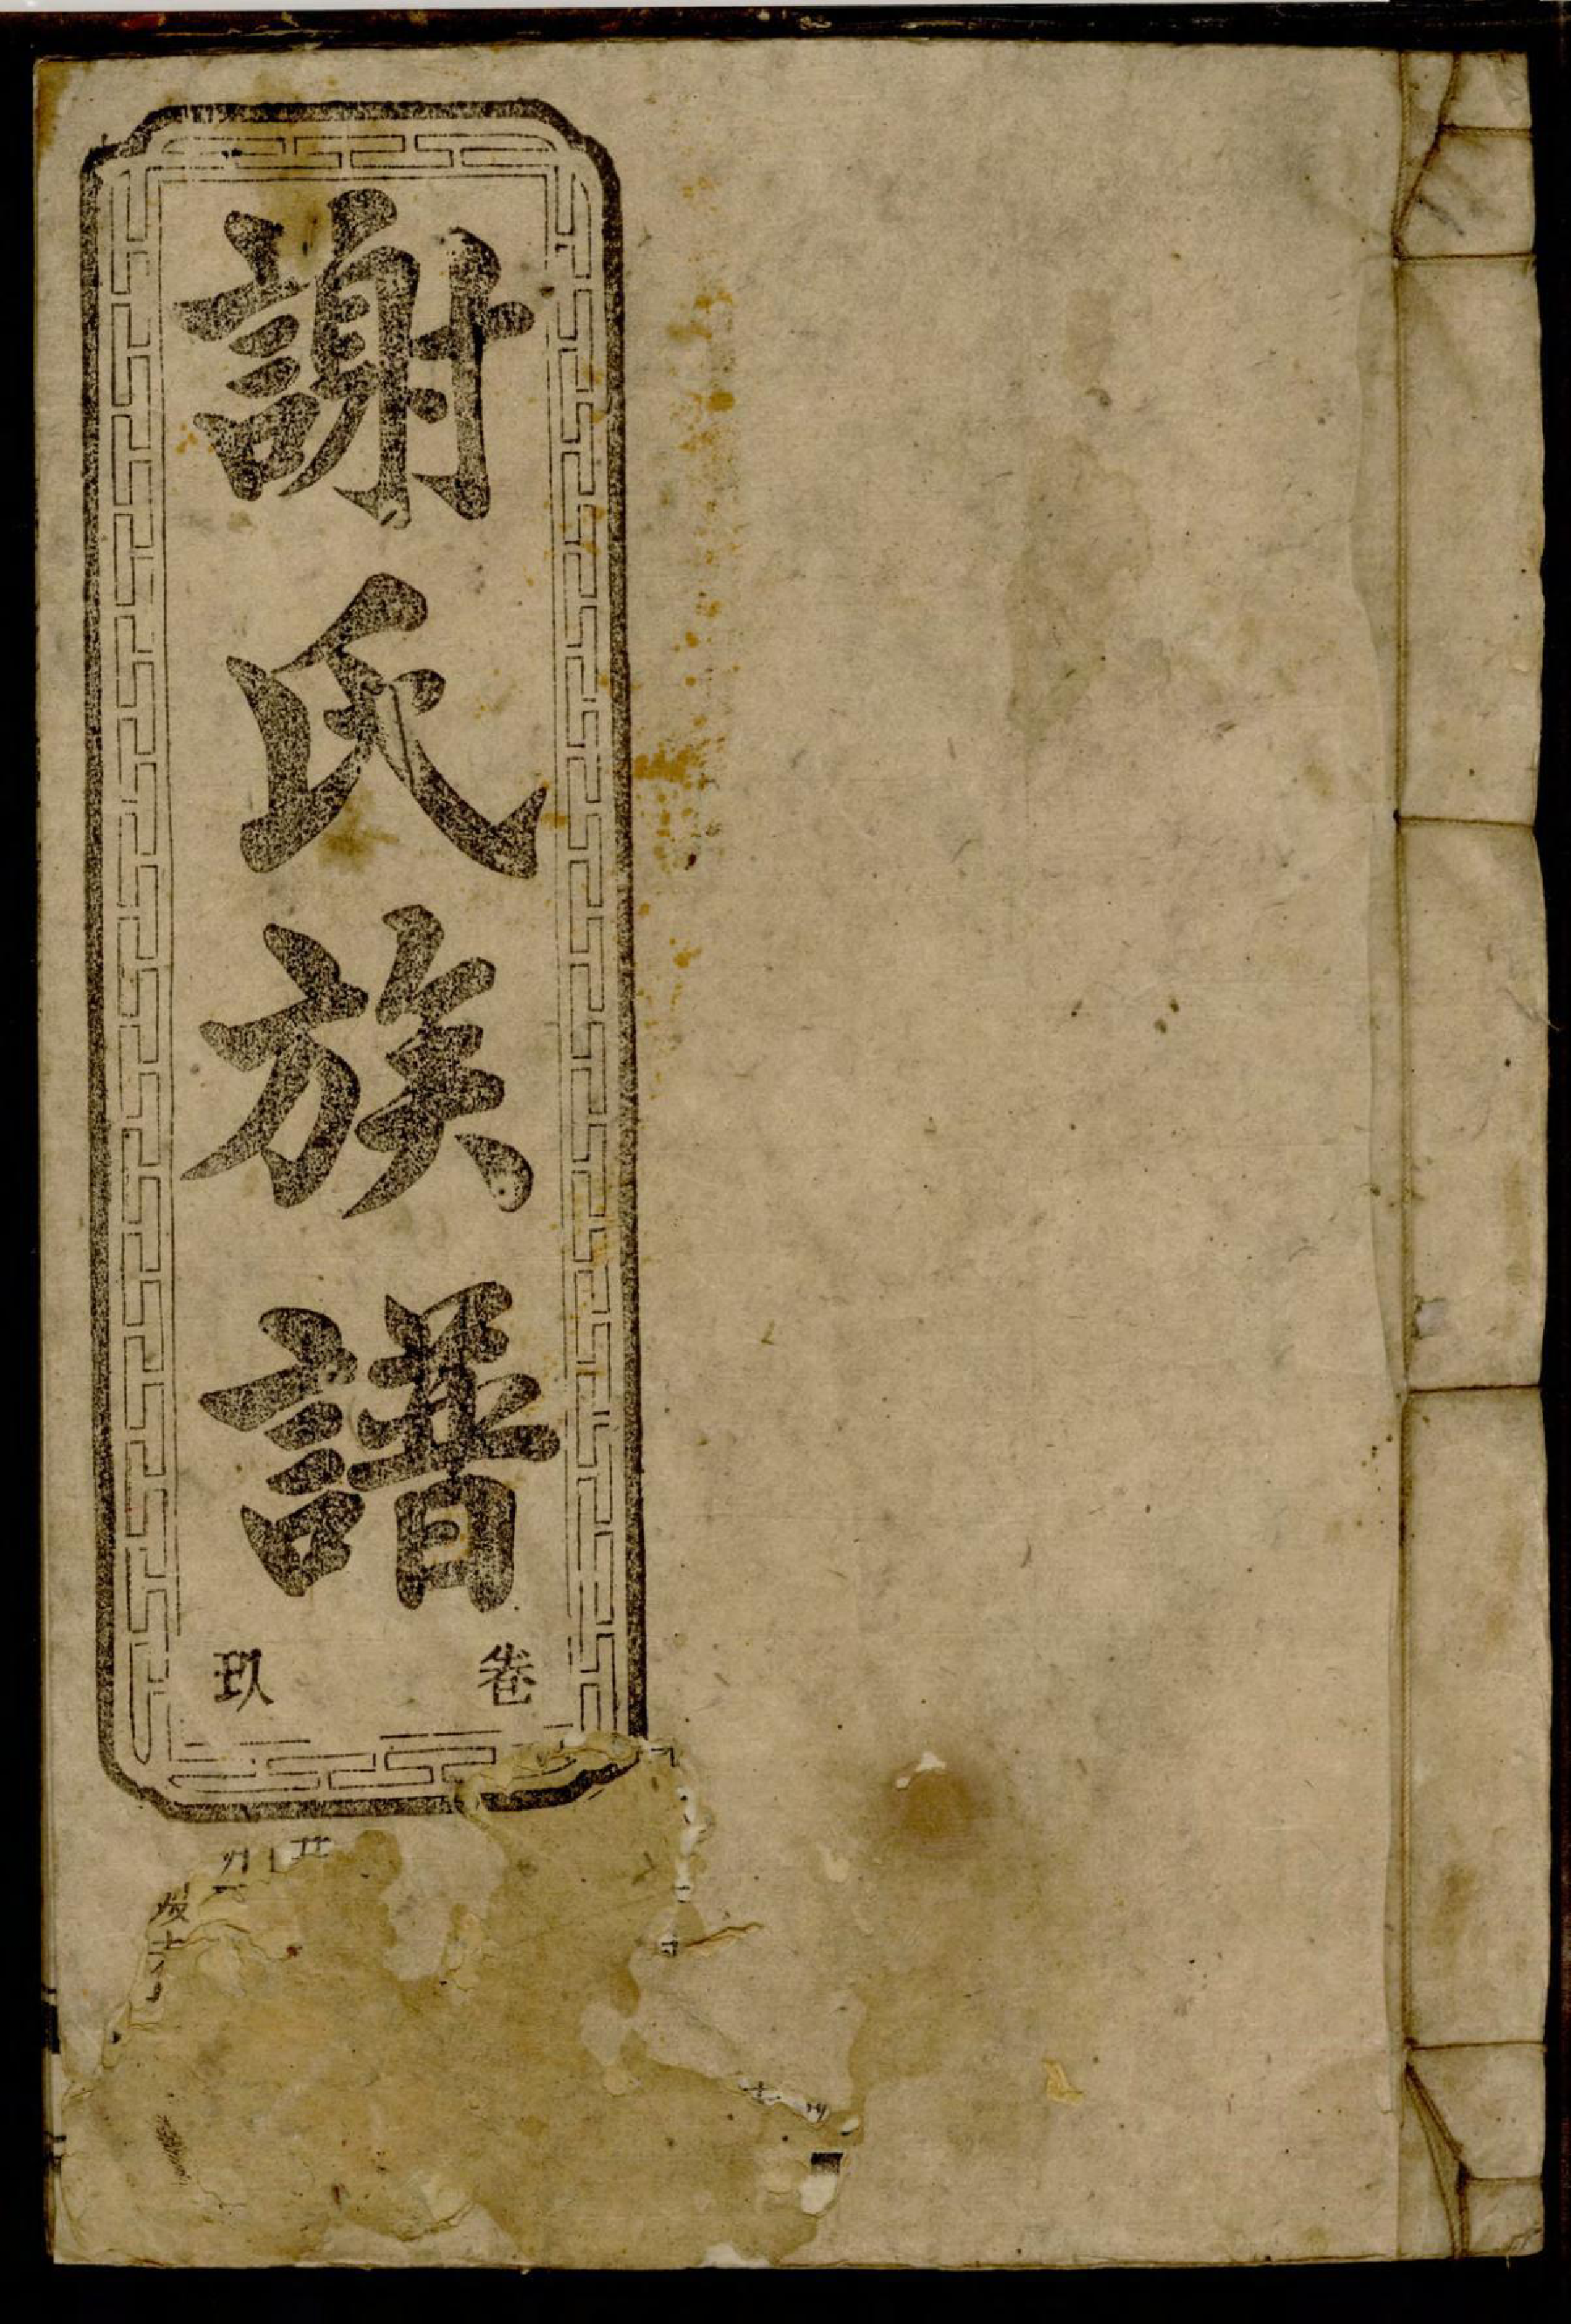 謝氏族譜
卷玖